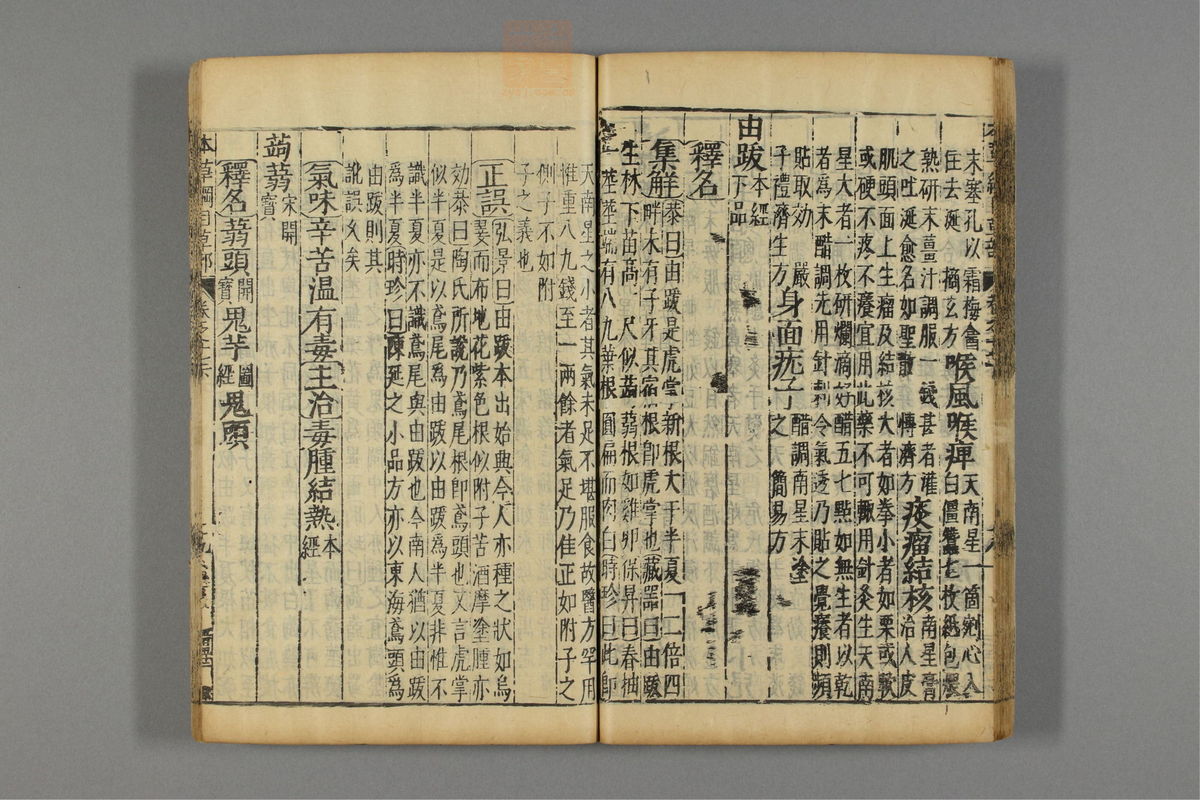 末塞孔以霜梅盦
住去涎 摘玄方 喉風喉痺 天南星一箇剜心入白殭蠶七枚紙包煨
熟研末薑汁調服一錢甚者灌
之吐涎愈名如聖散 博濟方 痰瘤結核 南星膏治人皮
肌頭面上生瘤及結核大者如拳小者如栗或軟
或硬不疼不癢宜用此藥不可輒用針灸生天南
星大者一枚研爛滴好醋五七點如無生者以乾
者爲末醋調先用針刺令氣透乃貼之覺癢則頻
貼取効 嚴子禮濟生方 身面疣子 醋調南星末塗之 簡易方
由跋 本經下品
釋名
集解 恭曰由跋是虎掌新根大于半夏一二倍四畔未有子牙其宿根卽虎掌也藏器曰由跋
生林下苗高一尺似蒟蒻根如雞卵保昇曰春抽
一莖莖端有八九葉根圓扁而肉白時珍曰此卽
天南星之小者其氣未足不堪服食故醫方罕用
惟重八九錢至一兩餘者氣足乃佳正如附子之
側子不如附
子之義也
正誤 弘景曰由跋本出始興今人亦種之狀如烏翣而布地花紫色根似附子苦酒摩塗腫亦
効恭曰陶氏所說乃鳶尾根卽鳶頭也又言虎掌
似半夏是以鳶尾爲由跋以由跋爲半夏非惟不
識半夏亦不識鳶尾與由跋也今南人猶以由跋
爲半夏時珍曰陳延之小品方亦以東海鳶頭爲
由跋則其
訛誤久矣
氣味 辛苦溫有毒 主治 毒腫結熱 本經
蒟蒻 宋開寶
釋名 蒻頭 開寶 鬼芋 圖經 鬼頭
本草綱目草部